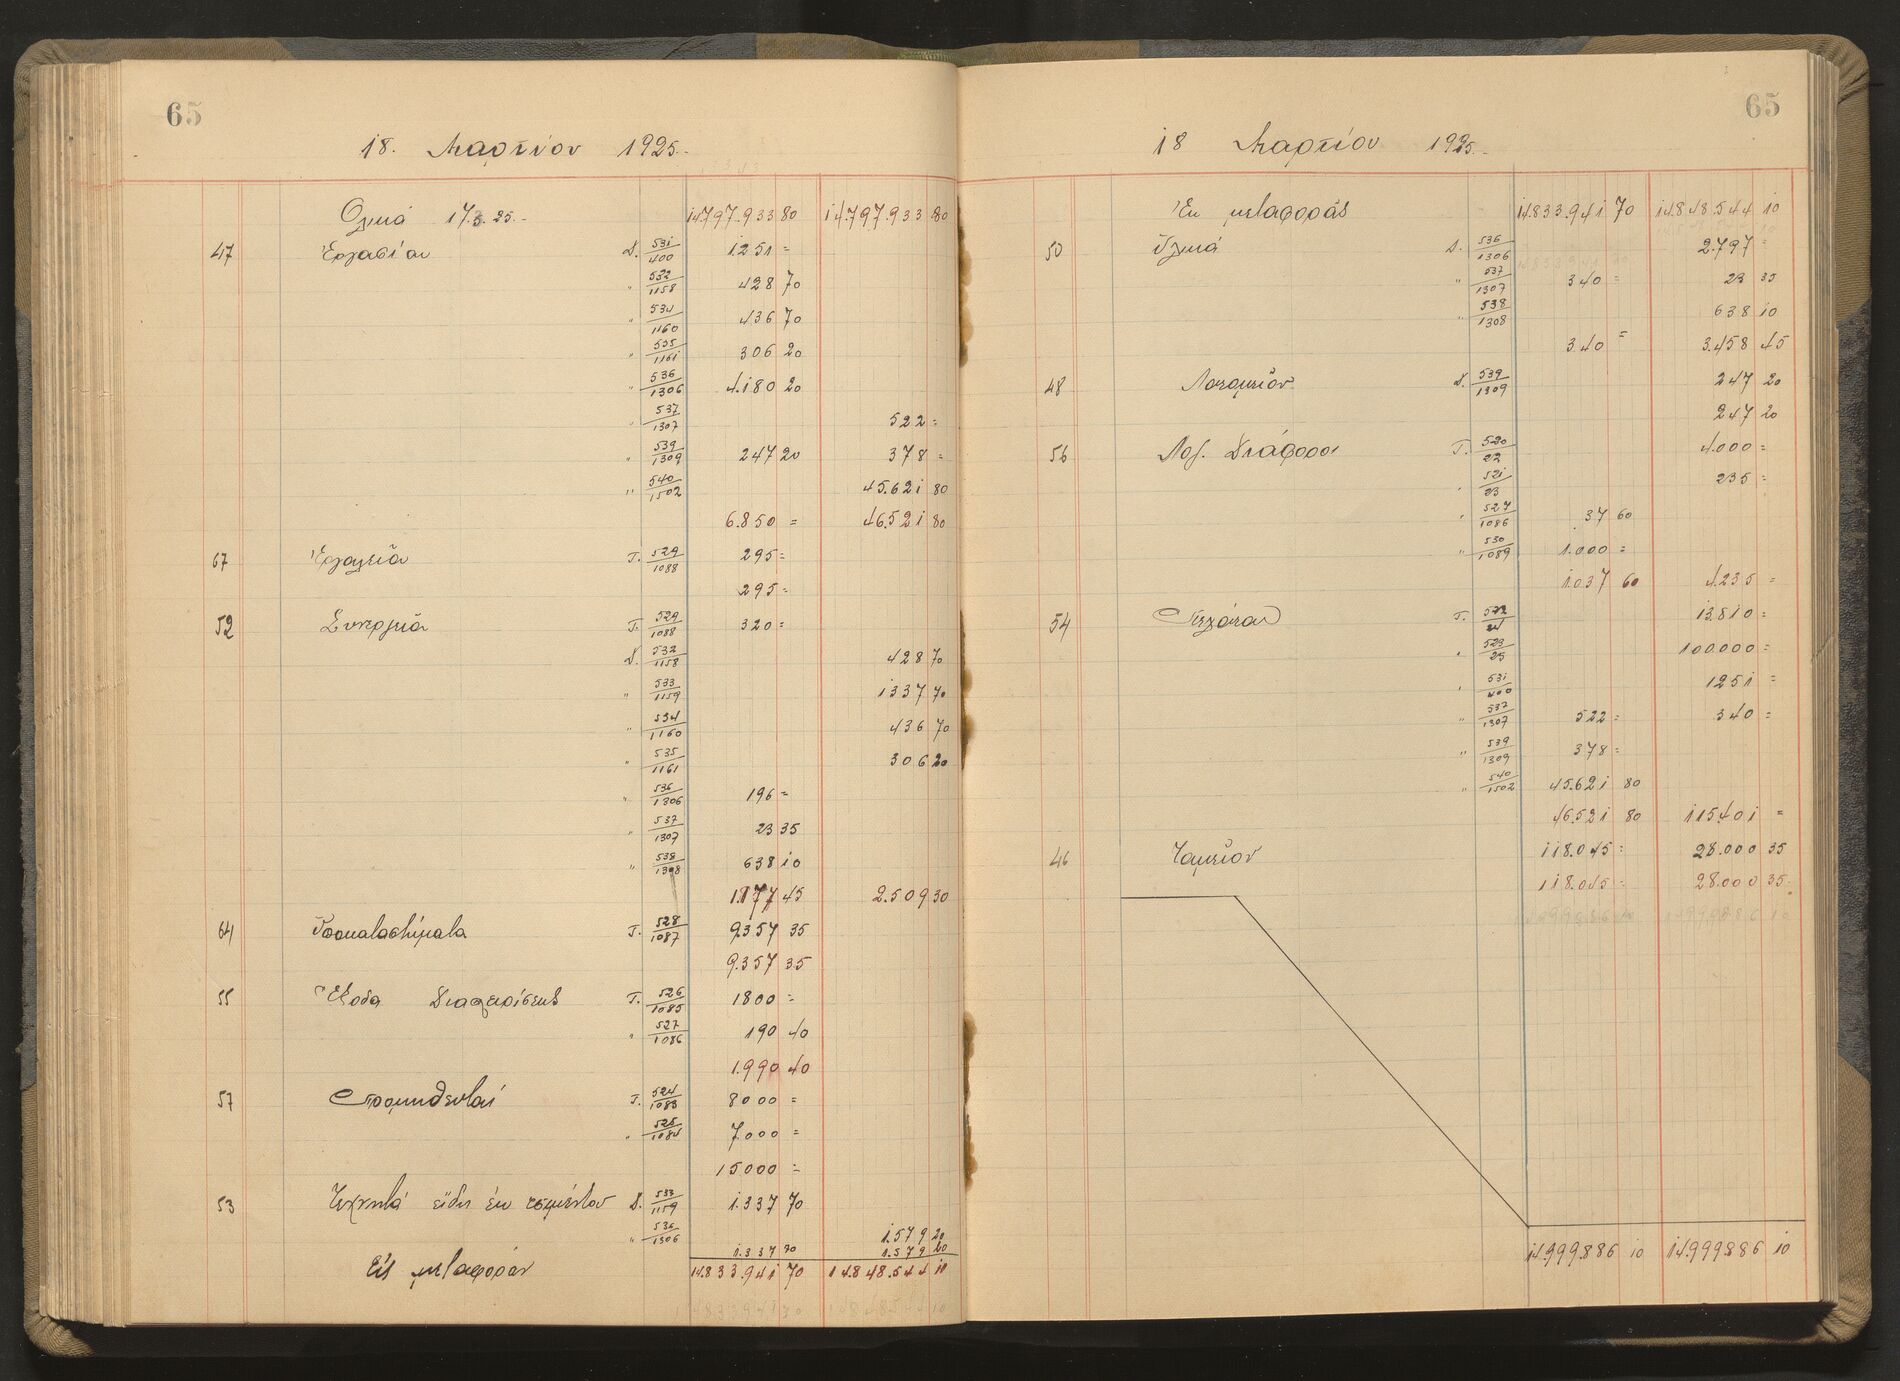 65
18. Μαρτίου 1925.-
Ολικά 17.3.25.- 14.797.933 80 14.797.933 80
47 Εργασίαι Δ. 531/400 1.251 =
" 532/1158 428 70
" 534/1160 436 70
" 535/1161 306 20
" 536/1306 4.180 20
" 537/1307 522 =
" 539/1309 247 20 378 =
" 540/1502 45.621 80
6.850 = 46.521 80
67 Εργαλεία Τ. 529/1088 295 =
295 =
52 Συνεργεία Τ. 529/1088 320 =
Δ. 532/1158 428 70
" 533/1159 1337 70
" 534/1160 436 70
" 535/1161 306 20
" 536/1306 196 =
" 537/1307 23 35
" 538/1308 638 10
1.177 45 2.509 30
64 Υποκαταστήματα Τ. 528/1087 9.357 35
9.357 35
55 Έξοδα Διαχειρίσεως Τ. 526/1085 1800 =
" 527/1086 190 40
1.990 40
57 Προμηθευταί Τ. 524/1083 8000 =
" 525/1084 7.000 =
15000 =
53 Τεχνητά είδη εκ τσιμέντου Δ. 533/1159 1.337 70
" 536/1306 1.579 20
1.337 70 1.579 20
Εις μεταφοράν 14.833.941 70 14.848.544 10
65
18 Μαρτίου 1925.-
Εκ μεταφοράς 14.833.941 70 14.848.544 10
50 Υλικά Δ. 536/1306 2.797 =
" 537/1307 340 = 23 35
" 538/1308 638 10
340 = 3.458 45
48 Λατομείον Δ. 539/1309 247 20
247 20
56 Λογ. Διάφοροι Τ. 520/22 4.000 =
" 521/23 235 =
" 527/1086 37 60
" 530/1089 1.000 =
1.037 60 4.235 =
54 Πελάται Τ. 522/24 13.810 =
" 523/25 100.000 =
" 531/400 1251 =
" 537/1307 522 = 340 =
" 539/1309 378 =
" 540/1502 45.621 80
46.521 80 115.401 =
46 Ταμείον 118.045 = 28.000 35
118.045 = 28.000 35
14.999.886 10 14.999.886 10